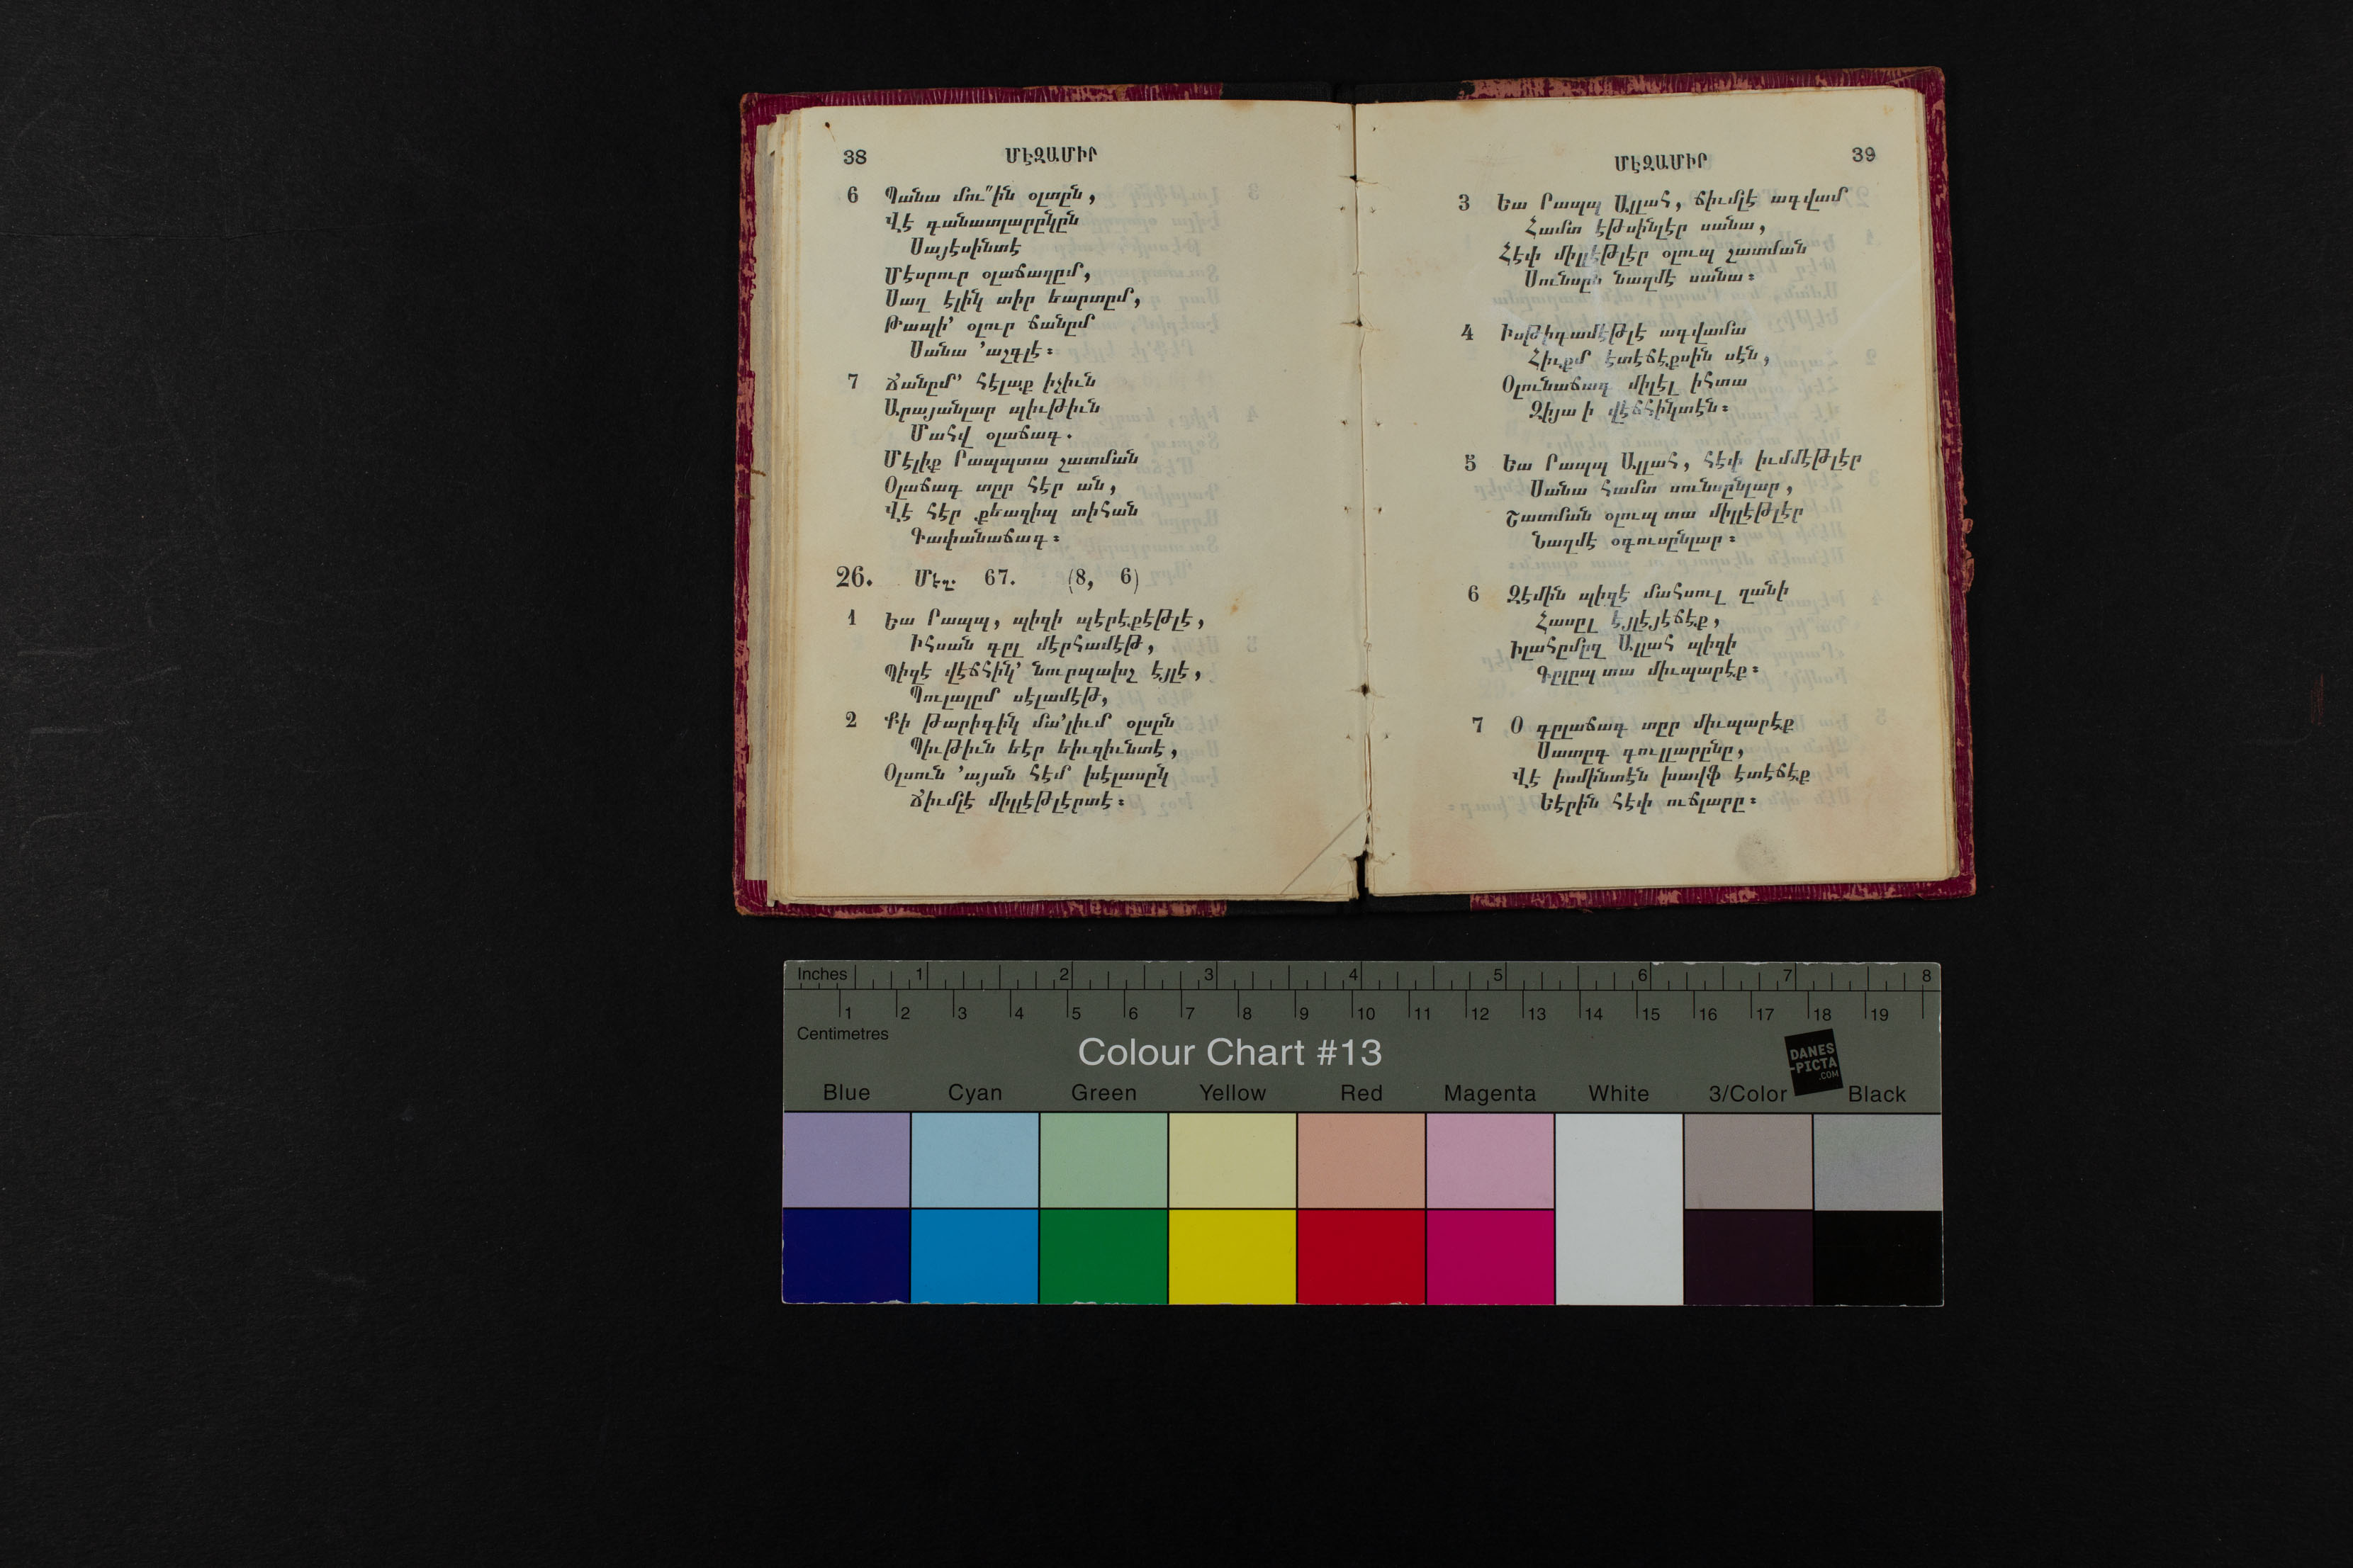 38 ՄԷԶԱՄԻՐ
6 Պանա մու՞ին օլտըն,
Վէ գանատլարընկըն
Սայէսինտէ
Մէսրուր օլաճաղըմ,
Սաղ էլինկ տիր եարտըմ,
Թապի՚ օլուր ճանըմ
Սանա ՚աշգլէ։
7 Ճանըմ՚ հէլաք իչիւն
Արայանլար պիւթիւն
Մահվ օլաճագ.
Մէլիք Րապպտա շատման
Օլաճագ տըր հէր ան,
Վէ հէր քեազիպ տիհան
Գափանաճագ։
26. Մեզ. 67. (8, 6)
1 Եա Րապպ, պիզի պէրէքէթլէ,
Իհսան գըլ մէրհամէթ,
Պիզէ վէճհինկ՚ նուրպախշ էյլէ,
Պուլալըմ սէլամէթ,
2 Քի թարիգինկ մա՚լիւմ օլսըն
Պիւթիւն եէր եիւզիւնտէ,
Օլսուն ՚այան հէմ խէլասընկ
Ճիւմլէ միլլէթլէրտէ։
ՄԷԶԱՄԻՐ 39
3 Եա Րապպ Ալլահ, ճիւմլէ ագվամ
Համտ էթսինլէր սանա,
Հէփ միլլէթլէր օլուպ շատման
Սունսըն նաղմէ սանա։
4 Իսթիգամէթլէ ագվամա
Հիւքմ էտէճէքսին սէն,
Օլունաճագ միլէլ իհտա
Զիյա ի վէճհինկտէն։
5 Եա Րապպ Ալլահ, հէփ իւմմէթլէր
Սանա համտ սունսընլար,
Շատման օլուպ տա միլլէթլէր
Նաղմէ օգուսընլար։
6 Զէմին պիզէ մահսուլ ղանի
Հասըլ էյլէյէճէք,
Իլահըմըզ Ալլահ պիզի
Գըլըպ տա միւպարէք։
7 Օ գըլաճագ տըր միւպարէք
Սատըգ գուլլարընը,
Վէ իսմինտէն խավֆ էտէճէք
Եէրին հէփ ուճլարը։
Inches 1 2 3 4 5 6 7 8
1 2 3 4 5 6 7 8 9 10 11 12 13 14 15 16 17 18 19
Centimetres
Colour Chart #13
DANES
-PICTA
.COM
Blue Cyan Green Yellow Red Magenta White 3/Color Black